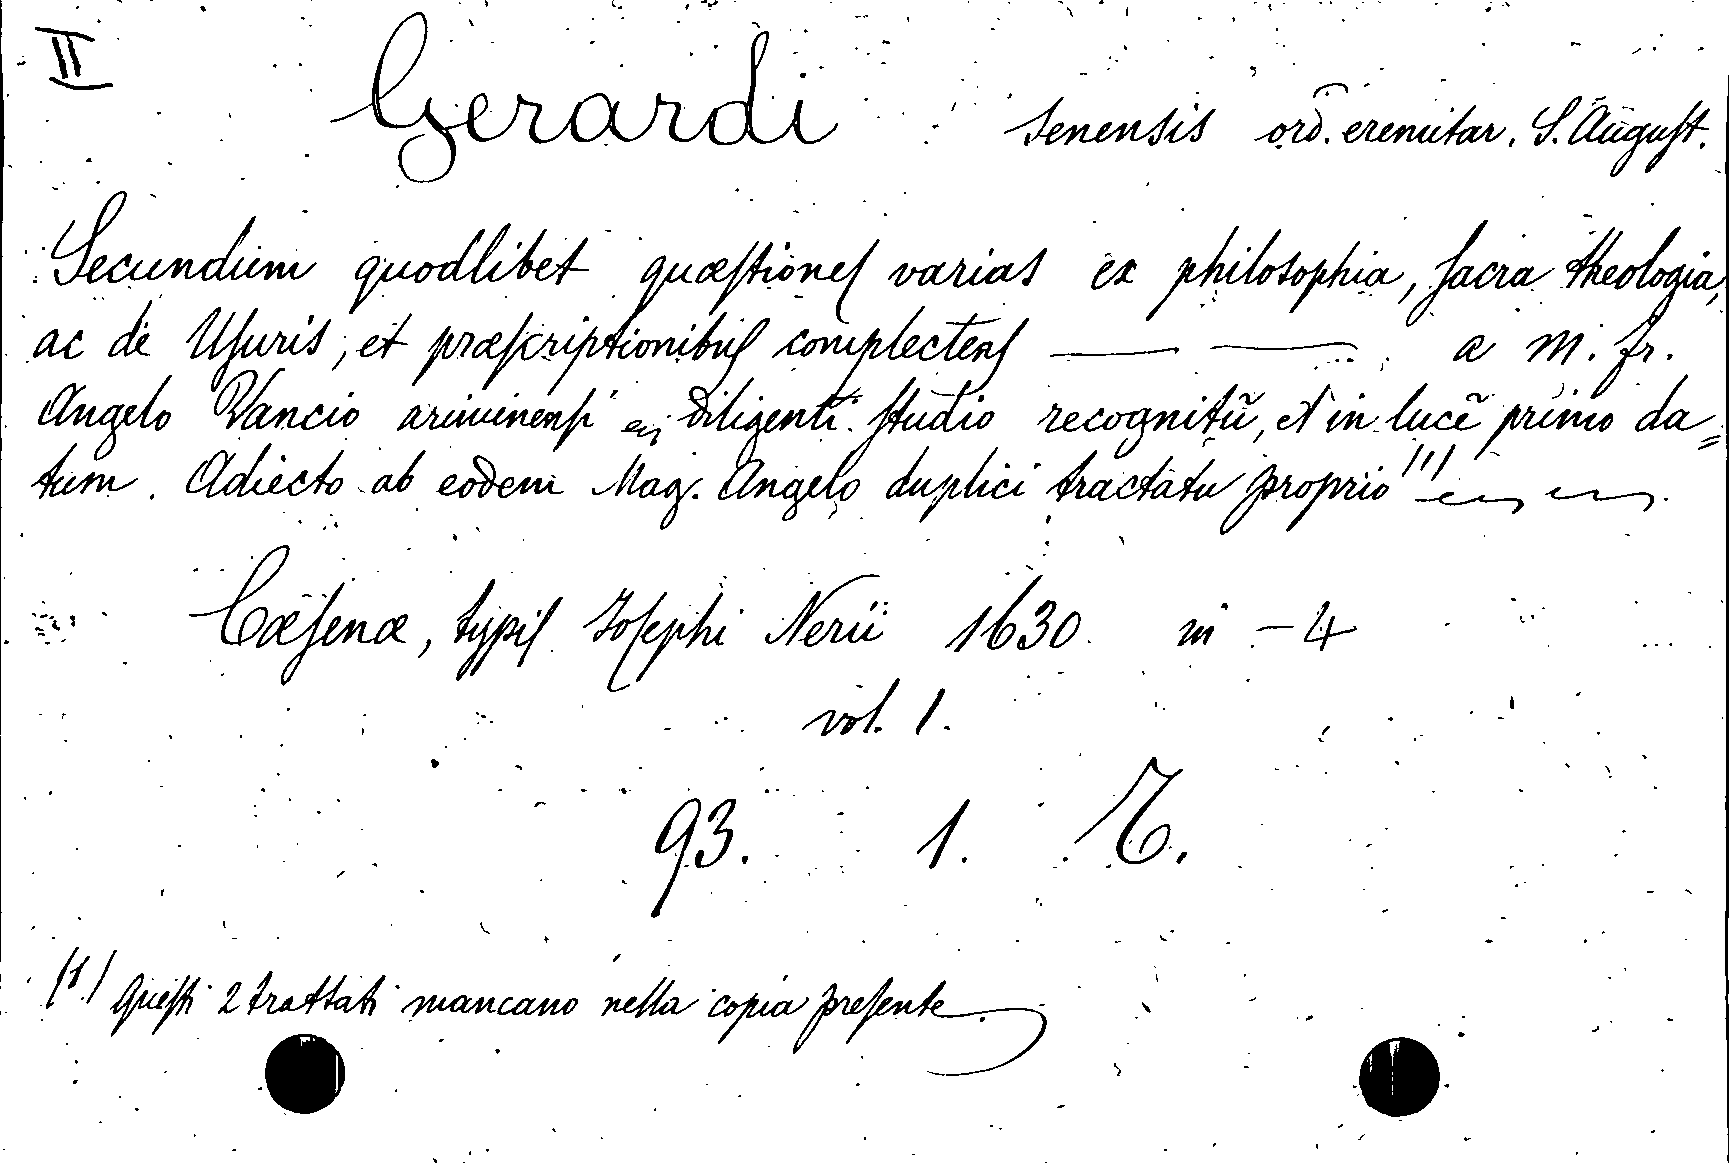 II
Gerardi senensis ord. eremitar. S. August.
Secundum quodlibet quæstiones varias ex philosophia, sacra theologia,
ac de Usuris, et præscriptionibus complectens —— —— a M. fr.
Angelo Vancio ariminensi diligenti studio recognitū, et in lucē primo da=
tum. Adiecto ab eodem Mag. Angelo duplici tractatu proprio (1)
Cæsenæ, typis Josephi Nerii 1630 in - 4
vol. 1.
93. 1. T.
(1) Questi 2 trattati mancano nella copia presente